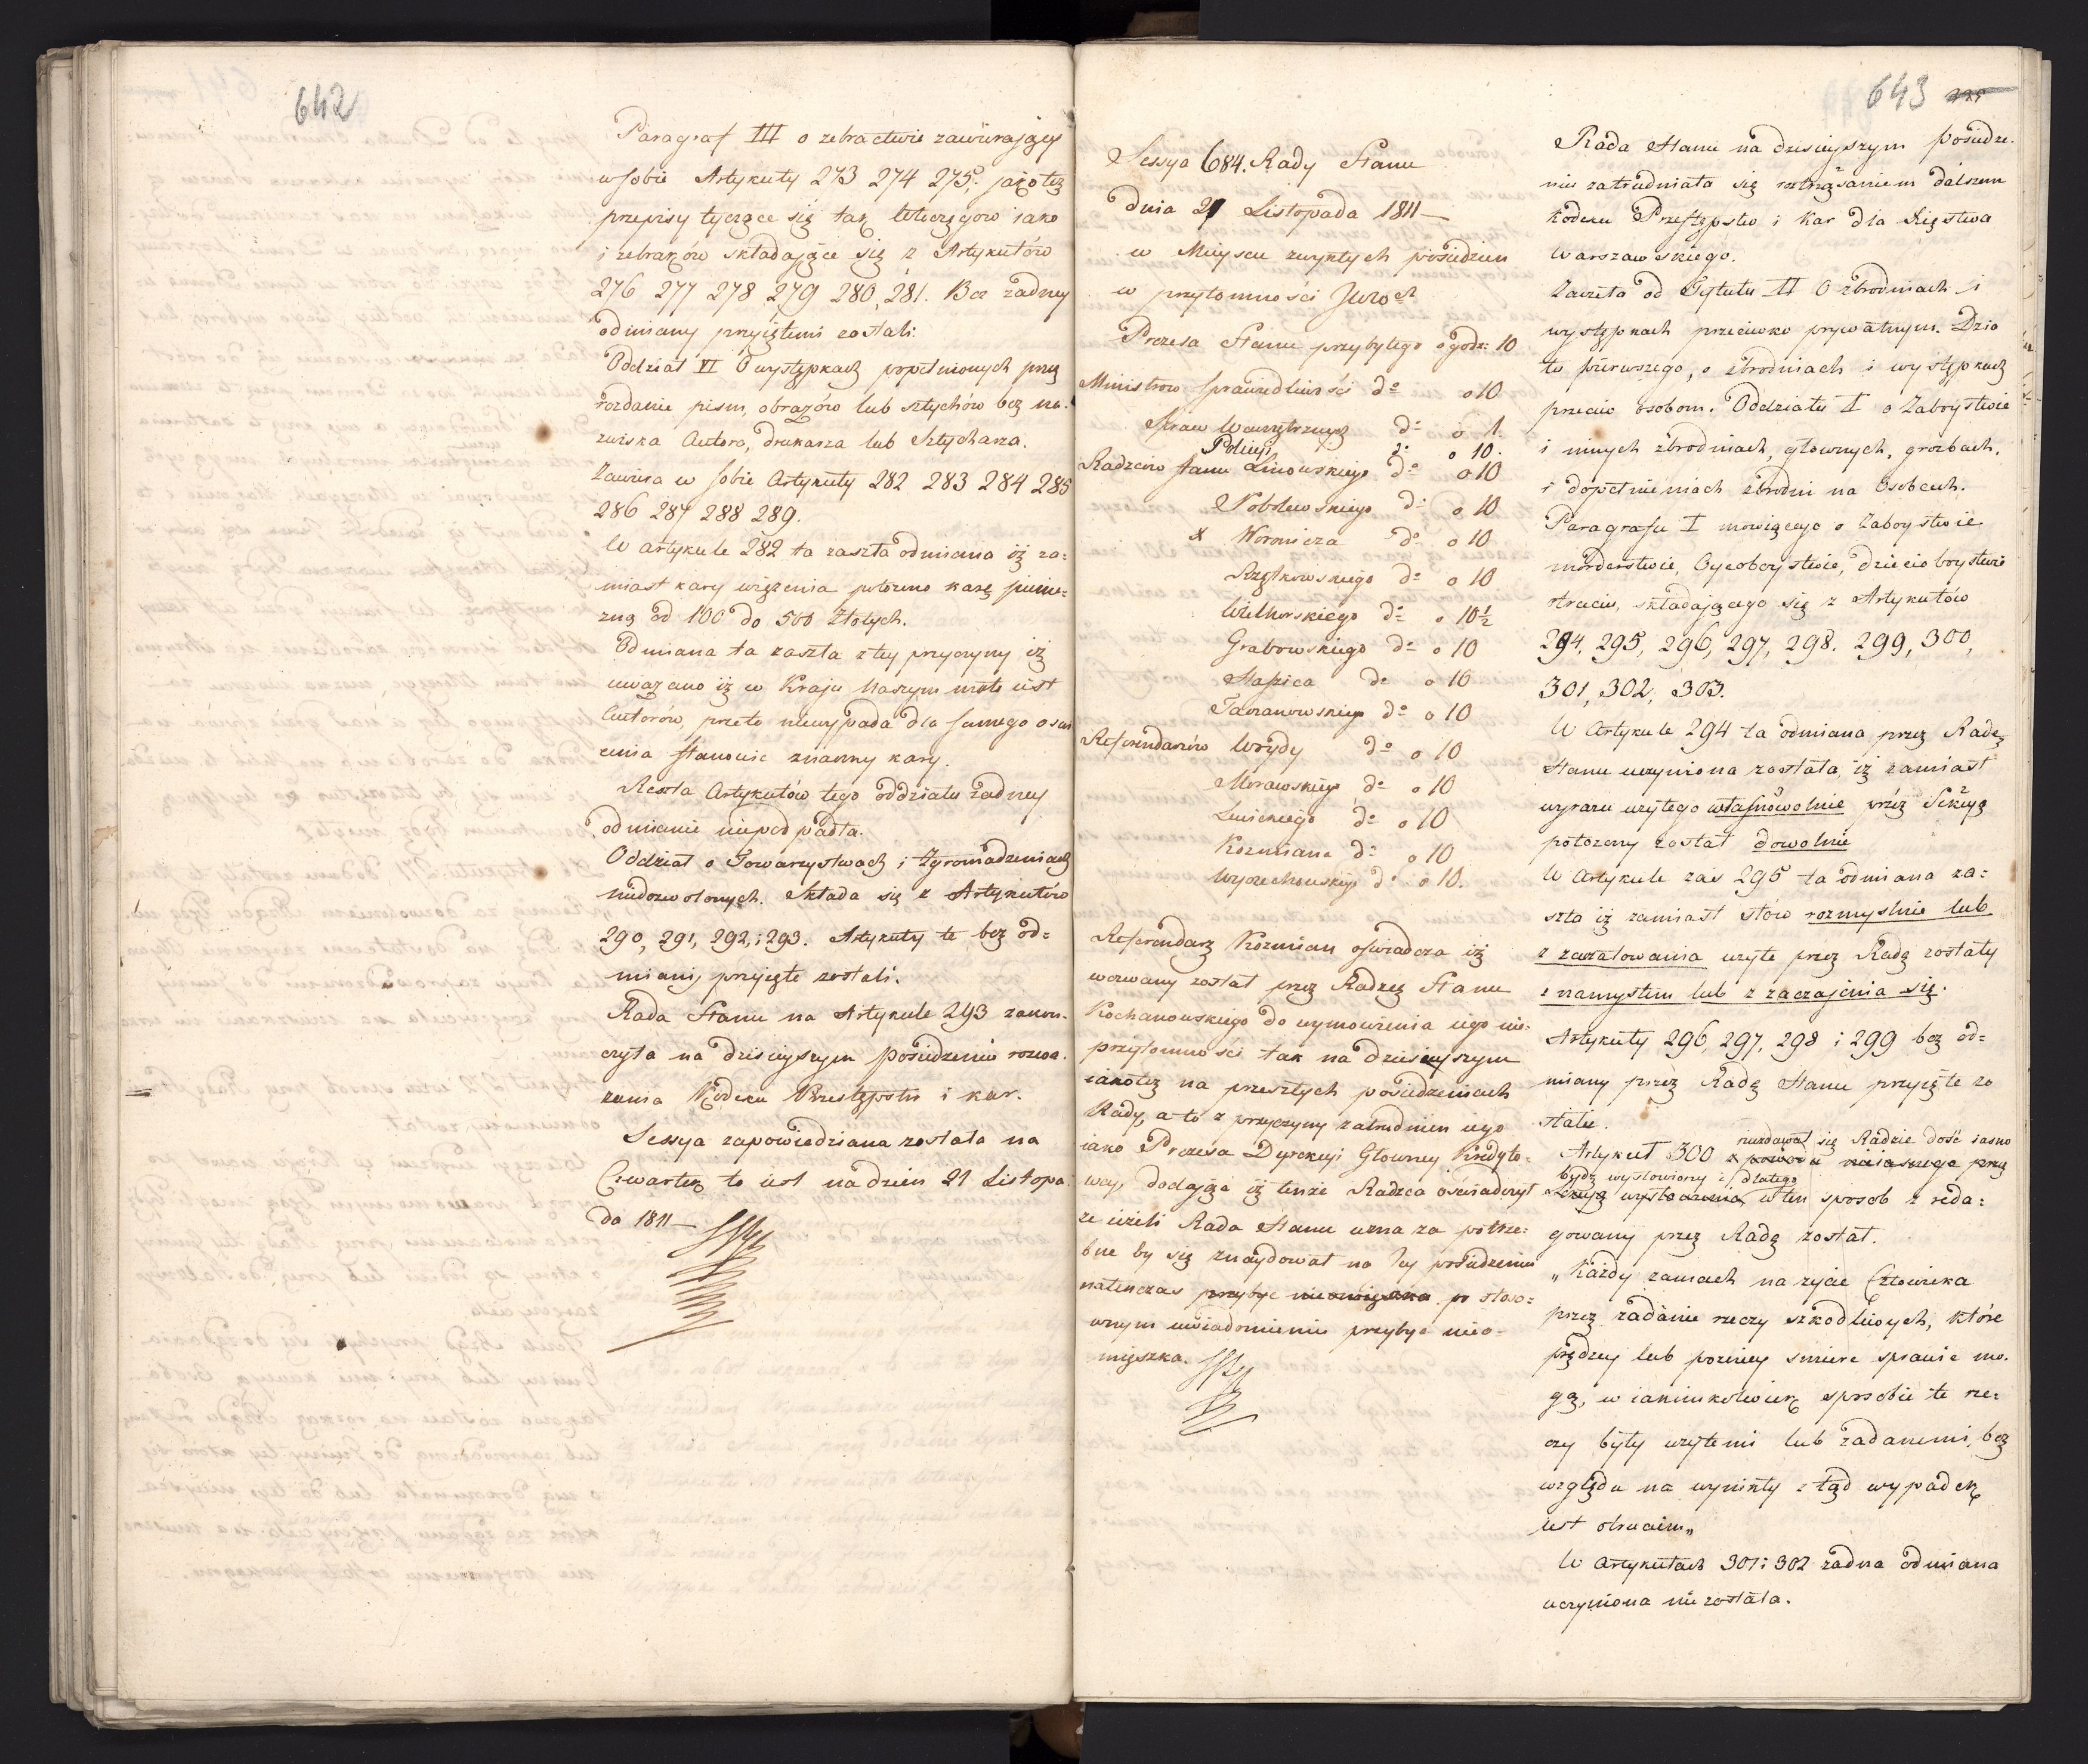 642
Paragraf III o zebractwie zawierający
w sobie Artykuły 273 274 275; jako też
przepisy tyczące się tak włoczęgow iako
i zebraków składaiące się z Artykułów
276 277 278 279 280, 281. Bez żadney
odmiany przyiętemi zostali:
Oddział VI O występkach popełnionych przez
rozdanie pism, obrazów lub sztychów bez na-
zwiska Autora, drukarza lub Sztycharza.
Zawiera w sobie Artykuły 282 283 284 285
286 287 288 289.
W artykule 282 ta zaszła odmiana iż za=
miast kary więzienia położono karę pienię=
zną od 100 do 500 Złotych.
Odmiana ta zaszła z tey przyczyny iż
uważano iż w Kraju Naszym mało iest
Autorów, przeto niewypada dla samego
stanowić znaczny kary.
Reszta Artykułów tego oddziału żadney
odmianie niepodpadła.
Oddział o Towarzystwach i Zgromadzeniach
niedozwolonych. Składa się z Artykułów
290, 291, 292, i 293. Artykuły te bez od=
miany przyięte zostali.
Rada Stanu na Artykule 293 zakoń-
czyła na dzisieyszym posiedzeniu rozwa-
żania Kodexu Przestępstw i kar.
Sessya zapowiedziana została na
Czwartek to iest na dzień 21 Listopa-
da 1811 —
643
Sessya 684. Rady Stanu
dnia 21 Listopada 1811 —
w Mieyscu zwykłych posiedzen
w przytomności JWWch
Prezesa Stanu przybyłego o godz: 10
Ministrow Sprawiedliwości do o 10
Spraw Wewnętrznych do o 1.
Policyi do o 10.
Radzców stanu Linowskiego do o 10
Nobolewskiego do o 10
x Woronicza do o 10
do o 10
Wielhorskiego do o 10½
Grabowskiego do o 10
Staszica do o 10
Taczanowskiego do o 10
Referendarzów Woydy do o 10
Morawskiego do o 10
Łuickiego do o 10
Kozmiana do o 10
Wyczechowskiego do o 10.
Referendarz Kozmian oświadcza iż
wezwany został przez Radzcę Stanu
Kochanowskiego do wymowienia iego nie-
przytomności tak na dzisieyszym
iakoteż na przeszłych posiedzeniach
Rady, a to z przyczyny zatrudnien iego
iako Prezesa Dyrekcyi Główney Kredyto-
wey, dodaiąc iż tenże Radzca oświadczył
że ieżeli Rada Stanu uzna za potrze-
bne by się znaydował na Jey posiedzeniu
natenczas przybyć nieomieszka po stoso=
wnym uwiadomieniu przybyć nieo-
mięszka.
Rada Stanu na dzisieyszym posiedze-
niu zatrudniała się roztrząsaniem dalszem
kodexu Przestępstw i Kar dla Xięstwa
Warszawskiego.
Zaczęła od Tytułu II O zbrodniach i
występkach przeciwko prywatnym. Dzia
łu pierwszego, o zbrodniach i występkach
przeciw osobom. Oddziału I o Zaboystwie
i innych zbrodniach, głownych, grozbach,
i dopełnieniach zbrodni na Osobach.
Paragrafu I mowiącego o Zaboystwie
morderstwie, Oycoboystwie, dzieciobóystwie
otruciu, składaiącego się z Artykułów
294, 295, 296, 297, 298. 299, 300,
301, 302, 303.
W Artykule 294 ta odmiana przez Radę
Stanu uczyniona została, iż zamiast
wyrazu użytego własnowolnie przez Sekcyą
położony został dowolnie
W Artykule zaś 295 ta odmiana za=
szła iż zamiast słów rozmyslnie lub
z zaczatowania użyte przez Radę zostały
z namysłem lub z zaczajenia się.
Artykuły 296, 297, 298 i 299 bez od=
miany przez Radę Stanu przyięte zo
stałie.
niezdawał się Radzie dość iasno
Artykuł 300 z powodu nieiasnego przez
bydź wysłowiony i dlatego
Sekcyą wysłowienia w ten sposob z reda=
gowany przez Radę został.
„Każdy zamach na zycie Człowieka
przez zadanie rzeczy szkodliwych, które
prędzey lub pozniey smierc sprawic mo-
gą, w iakimkolwiek sposobie te rze-
czy były użytemi lub zadanemi, bez
względu na wynikły z tąd wypadek
iest otruciem„
W Artykułach 301 i 302 żadna odmiana
uczyniona nie została.